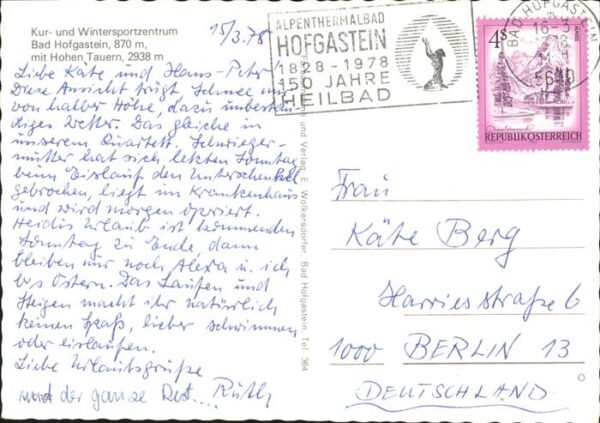 Kur- und Wintersportzentrum
Bad Hofgastein, 870 m,
mit Hohen Tauern, 2938 m
15/3.78
Liebe Käte und Hans-Peter!
Diese Ansicht trügt, Schnee nur
von halber Höhe, dazu unbestän-
diges Wetter. Das gleiche in
unserem Quartett. Schwieger-
mutter hat sich letzten Sonntag
beim Eislauf den Unterschenkel
gebrochen, liegt im Krankenhaus
und wird morgen operiert.
Heidis Urlaub ist kommenden
Sonntag zu Ende dann
bleiben nur noch Alexa u. ich
bis Ostern. Das Laufen und
Steigen macht ihr natürlich
keinen Spaß, lieber schwimmen
oder eislaufen.
Liebe Urlaubsgrüße
und der ganze Rest... Ruth
und Verlag E. Wolkersdorfer, Bad Hofgastein, Tel. 364
ALPENTHERMALBAD
HOFGASTEIN
1828-1978
150 JAHRE
HEILBAD
BAD HOFGASTEIN
5630
4S
REPUBLIK ÖSTERREICH
Frau
Käte Berg
Harriesstraße 6
1000 BERLIN 13
DEUTSCHLAND